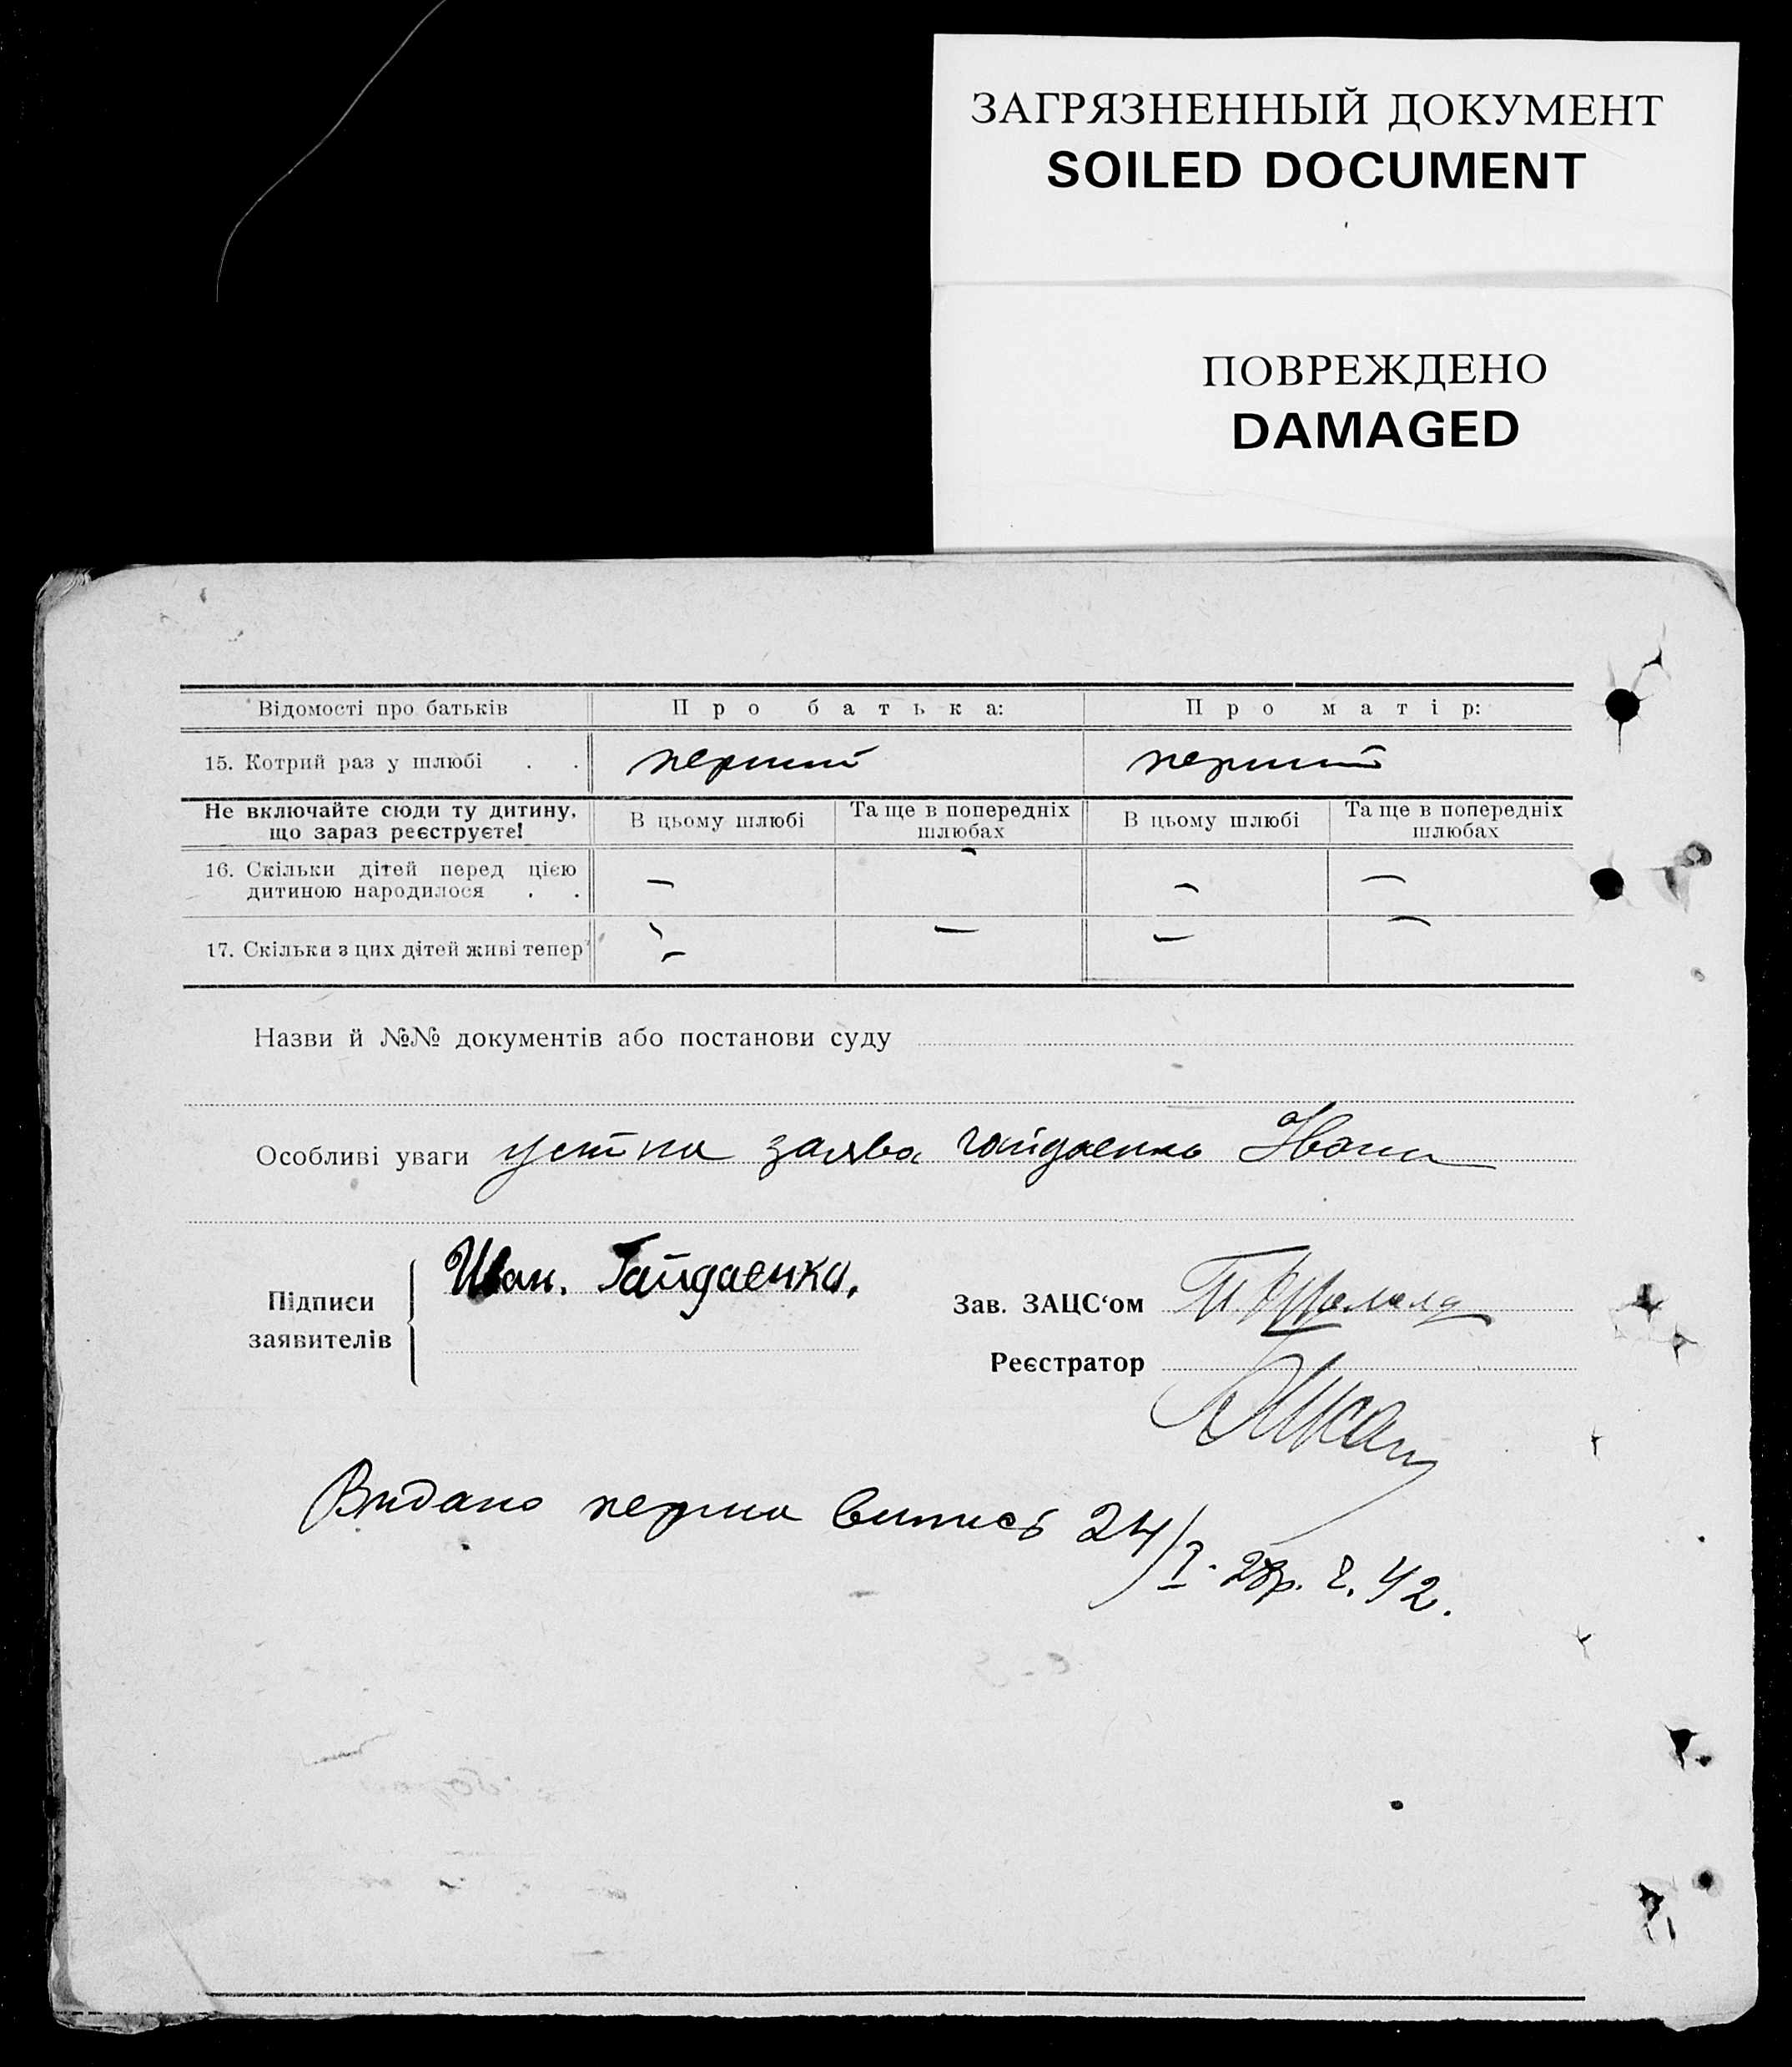 ЗАГРЯЗНЕННЫЙ ДОКУМЕНТ
SOILED DOCUMENT
ПОВРЕЖДЕНО
DAMAGED
Відомості про батьків Про батька: Про матір:
15. Котрий раз у шлюбі . . перший перший
Не включайте сюди ту дитину, що зараз реєструєте! В цьому шлюбі Та ще в попередніх шлюбах В цьому шлюбі Та ще в попередніх шлюбах
16. Скільки дітей перед цією дитиною народилося . . — — — —
17. Скільки з цих дітей живі тепер — — — —
Назви й №№ документів або постанови суду
Особливі уваги устна заява гайдаенко Івана
Підписи заявителів
Иван. Гайдаенко.
Зав. ЗАЦС‘ом
Реєстратор
Видано перша випись 24/I- р. 42.